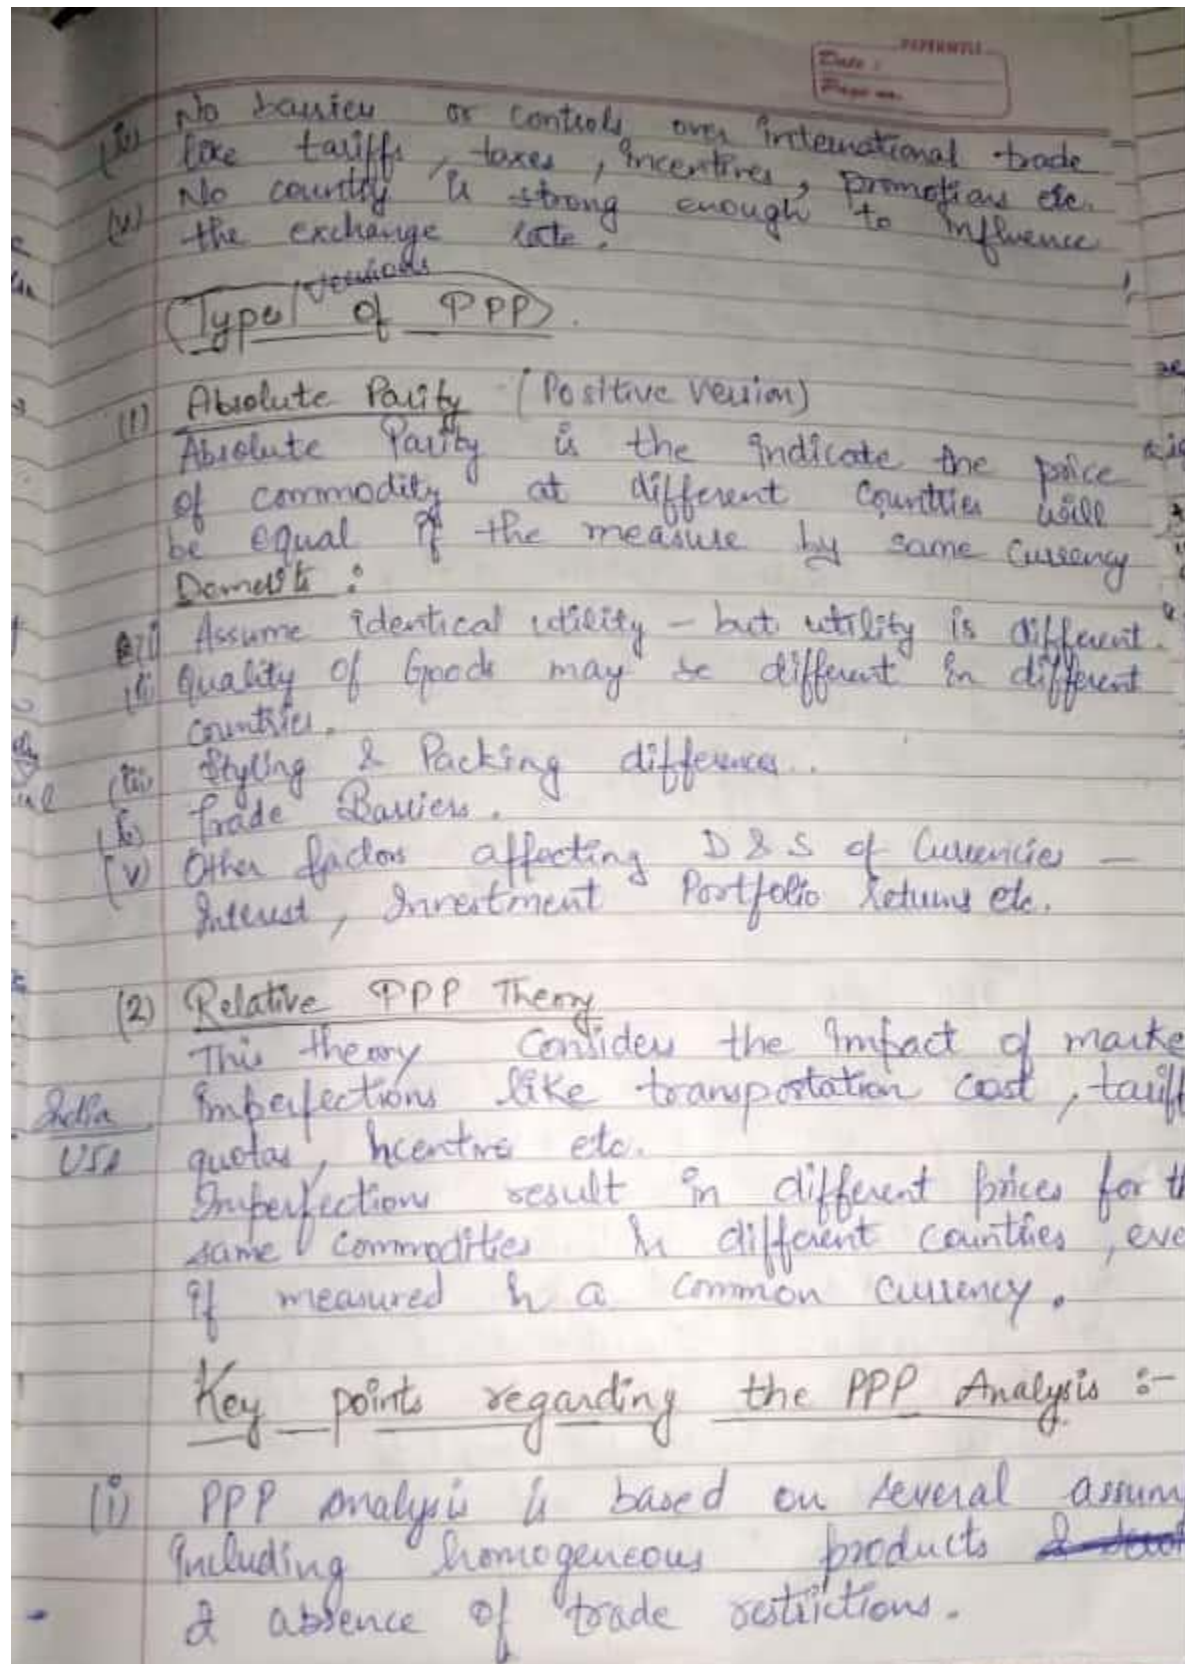 PAPERWELL
Date :
Page no.
(iv) No barrier or controls over international trade
like tariffs, taxes, incentives, promotions etc.
(v) No country is strong enough to influence
the exchange rate.
versions
Types/ of PPP.
(1) Absolute Parity (Positive Version)
Absolute Parity is the indicate the price
of commodity at different countries will
be equal if the measure by same currency
:
(i) Assume identical utility – but utility is different.
(ii) Quality of Goods may be different in different
countries.
(iii) Styling & Packing differences..
(iv) Trade Barriers.
(v) Other factors affecting D & S of Currencies —
Interest, Investment Portfolio Returns etc.
(2) Relative PPP Theory
This theory Considers the impact of marke
India imperfections like transportation cost, tariff
USA quotas, incentive etc.
Imperfections result in different prices for th
same commodities in different countries, eve
if measured in a common currency.
Key points regarding the PPP Analysis :-
(i) PPP analysis is based on several assum
including homogeneous products
& absence of trade restrictions.